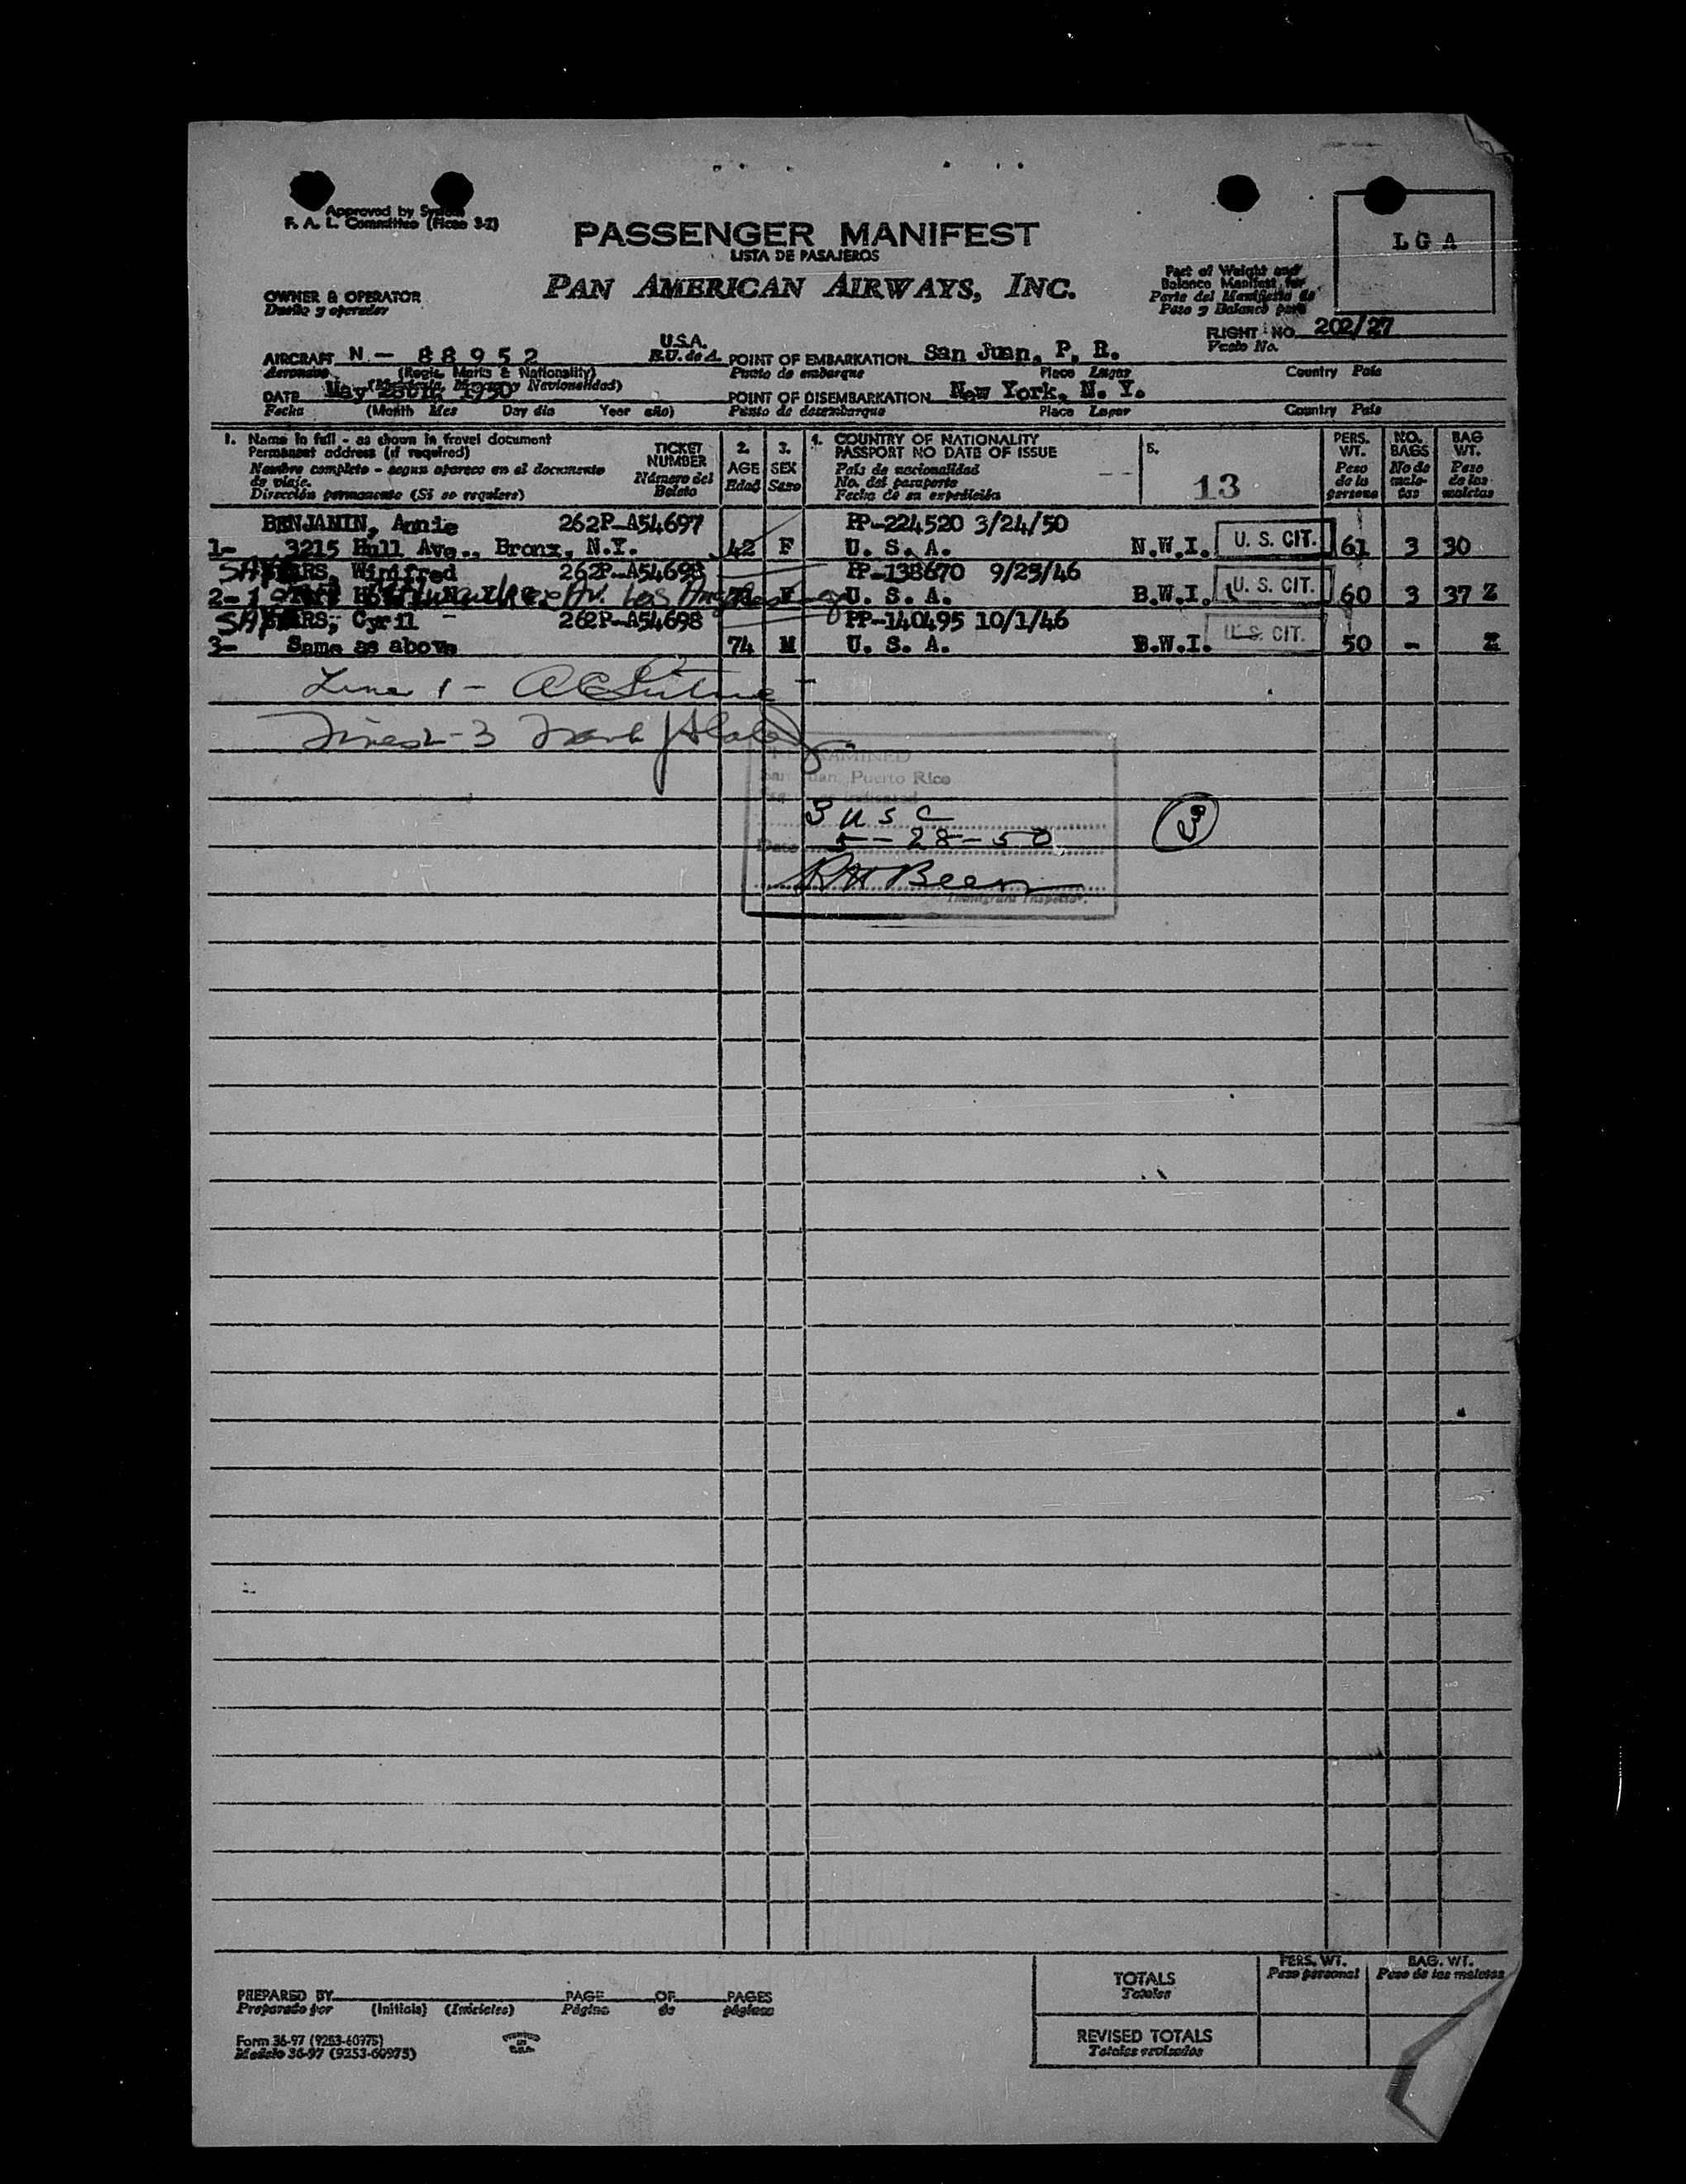 Approved by System
F. A. L. Committee
PASSENGER MANIFEST
LISTA DE PASAJEROS
PAN AMERICAN AIRWAYS, INC.
L G A
Part of Weight and
Balance Manifest for
Parte del Manifiesto de
Peso y Balance para
OWNER & OPERATOR
Dueño y operador
FLIGHT NO. 202/27
Vuelo No.
AIRCRAFT N - 88952 U.S.A.
Aeronave (Regis. Marks & Nationality) E.U. de A.
(Matrícula, Marcas y Nacionalidad)
POINT OF EMBARKATION San Juan, P. R.
Punto de embarque Place Lugar Country País
DATE May 28th, 1950
Fecha (Month Mes Day día Year año)
POINT OF DISEMBARKATION New York, N. Y.
Punto de desembarque Place Lugar Country País
1. Name in full - as shown in travel document
Permanent address (if required)
Nombre completo - segun aparece en el documento
de viaje.
Dirección permanente (Si se requiere)
TICKET
NUMBER
Número del
Boleto
2.
AGE
Edad
3.
SEX
Sexo
4. COUNTRY OF NATIONALITY
PASSPORT NO DATE OF ISSUE
País de nacionalidad
No. del pasaporte
Fecha de su expedición
5.
13
PERS.
WT.
Peso
de la
persona
NO.
BAGS
No de
male-
tas
BAG
WT.
Peso
de las
maletas
BENJAMIN, Annie 262P-A54697 PP-224520 3/24/50
1- 3215 Hull Ave., Bronx, N.Y. 42 F U. S. A. N.W.I. U. S. CIT. 61 3 30
Winifred PP-138670 9/25/46
2- U. S. A. B.W.I. U. S. CIT. 60 3 37 Z
Cyril 262P-A54698 PP-140495 10/1/46
3- Same as above 74 M U. S. A. B.W.I. U. S. CIT. 50 - Z
Line 1 -
Lines 2-3
San Juan, Puerto Rico
3 USC
Date 5-28-50
Immigrant Inspector.
3
TOTALS
Totales
PERS. WT.
Peso personal
BAG. WT.
Peso de las maletas
REVISED TOTALS
Totales revisados
PREPARED BY PAGE OF PAGES
Preparado por (Initials) (Iniciales) Página de páginas
Form 36-97 (9253-60975)
Modelo 36-97 (9253-60975)